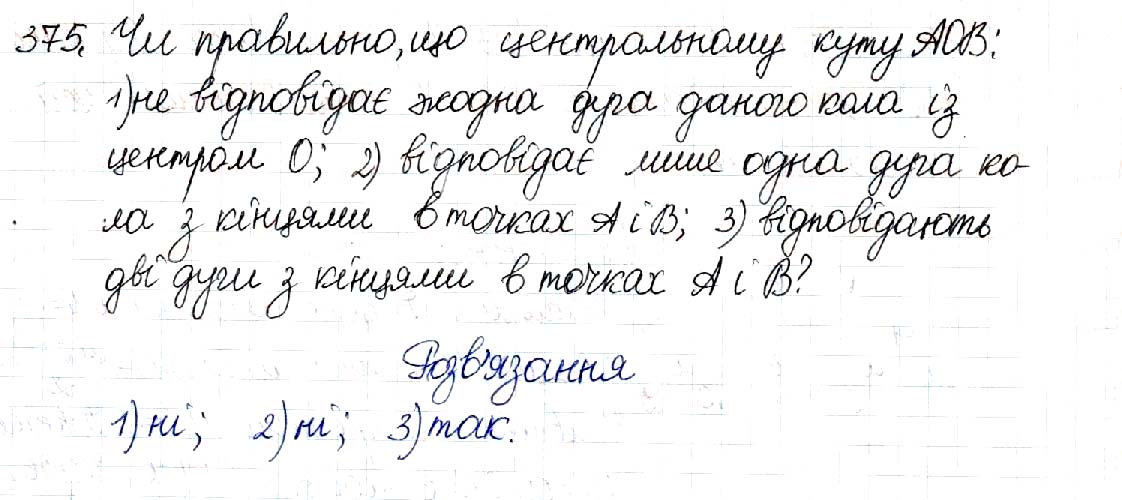 375. Чи правильно, що центральному куту АОВ:
1) не відповідає жодна дуга даного кола із
центром О; 2) відповідає лише одна дуга ко-
ла з кінцями в точках А і В; 3) відповідають
дві дуги з кінцями в точках А і В?
Розв'язання
1) ні; 2) ні; 3) так.